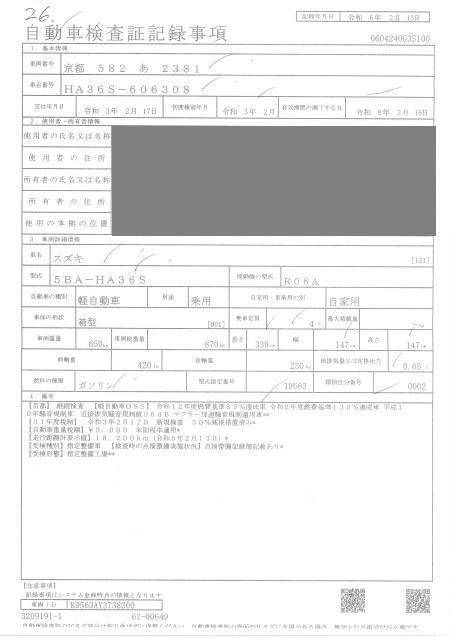 26.
記録年月日 令和 6年 2月 13日
自動車検査証記録事項
0604240035100
1. 基本情報
車両番号 京都 582 あ 2381
車台番号 HA36S-606308
交付年月日 令和 3年 2月 17日 初度検査年月 令和 3年 2月 有効期間の満了する日 令和 8年 2月 16日
2. 使用者・所有者情報
使用者の氏名又は名称
使用者の住所
所有者の氏名又は名称
所有者の住所
使用の本拠の位置
3. 車両詳細情報
車名 スズキ [121]
型式 5BA-HA36S 原動機の型式 R06A
自動車の種別 軽自動車 用途 乗用 自家用・事業用の別 自家用
車体の形状 箱型 [001] 乗車定員 4人 最大積載量
車両重量 650kg 車両総重量 870kg 長さ 339cm 幅 147cm 高さ 147cm
前軸重 420kg 後軸重 230kg 総排気量又は定格出力 0.65
燃料の種類 ガソリン 型式指定番号 19663 類別区分番号 0002
4. 備考
【京都】 継続検査 【軽自動車OSS】 令和12年度燃費基準85%達成車 令和2年度燃費基準130%達成車 平成1
0年騒音規制車 近接排気騒音規制値98dB マフラー加速騒音規制適用車**
【31年度税制】 令和3年2月17日 新規検査 50%減税措置済み*
【自動車重量税額】 ¥5,000 本則税率適用*
【走行距離計表示値】 18,200km (令和6年2月13日)*
【受検種別】 指定整備車 【検査時の点検整備実施状況】 点検整備記録簿記載あり*
【受検形態】 指定整備工場**
【注意事項】
記録事項はシステム登録時点の情報となります
車両ID K9563AY3738200
3209191-1 62-00649